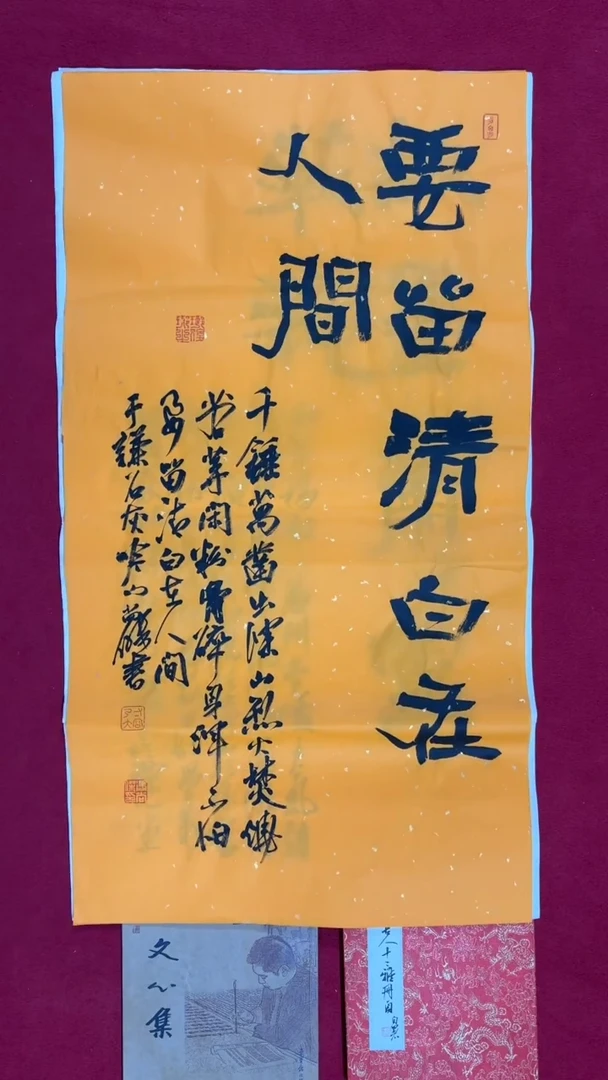 要留清白在
人間
千錘萬鑿出深山烈火焚燒
若等閑粉骨碎身渾不怕
要留清白在人間
于謙石灰吟 山 書
文心集
人十三 册 自